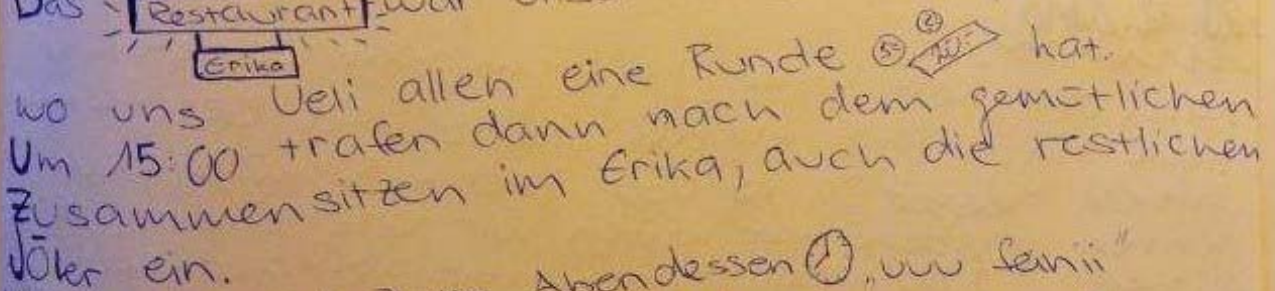 Das Restaurant war
Erika
wo uns Ueli allen eine Runde 5.- 2 20.- hat.
Um 15:00 trafen dann nach dem gemütlichen
Zusammensitzen im Erika, auch die restlichen
JÖler ein.
Abendessen „uuu feinii"